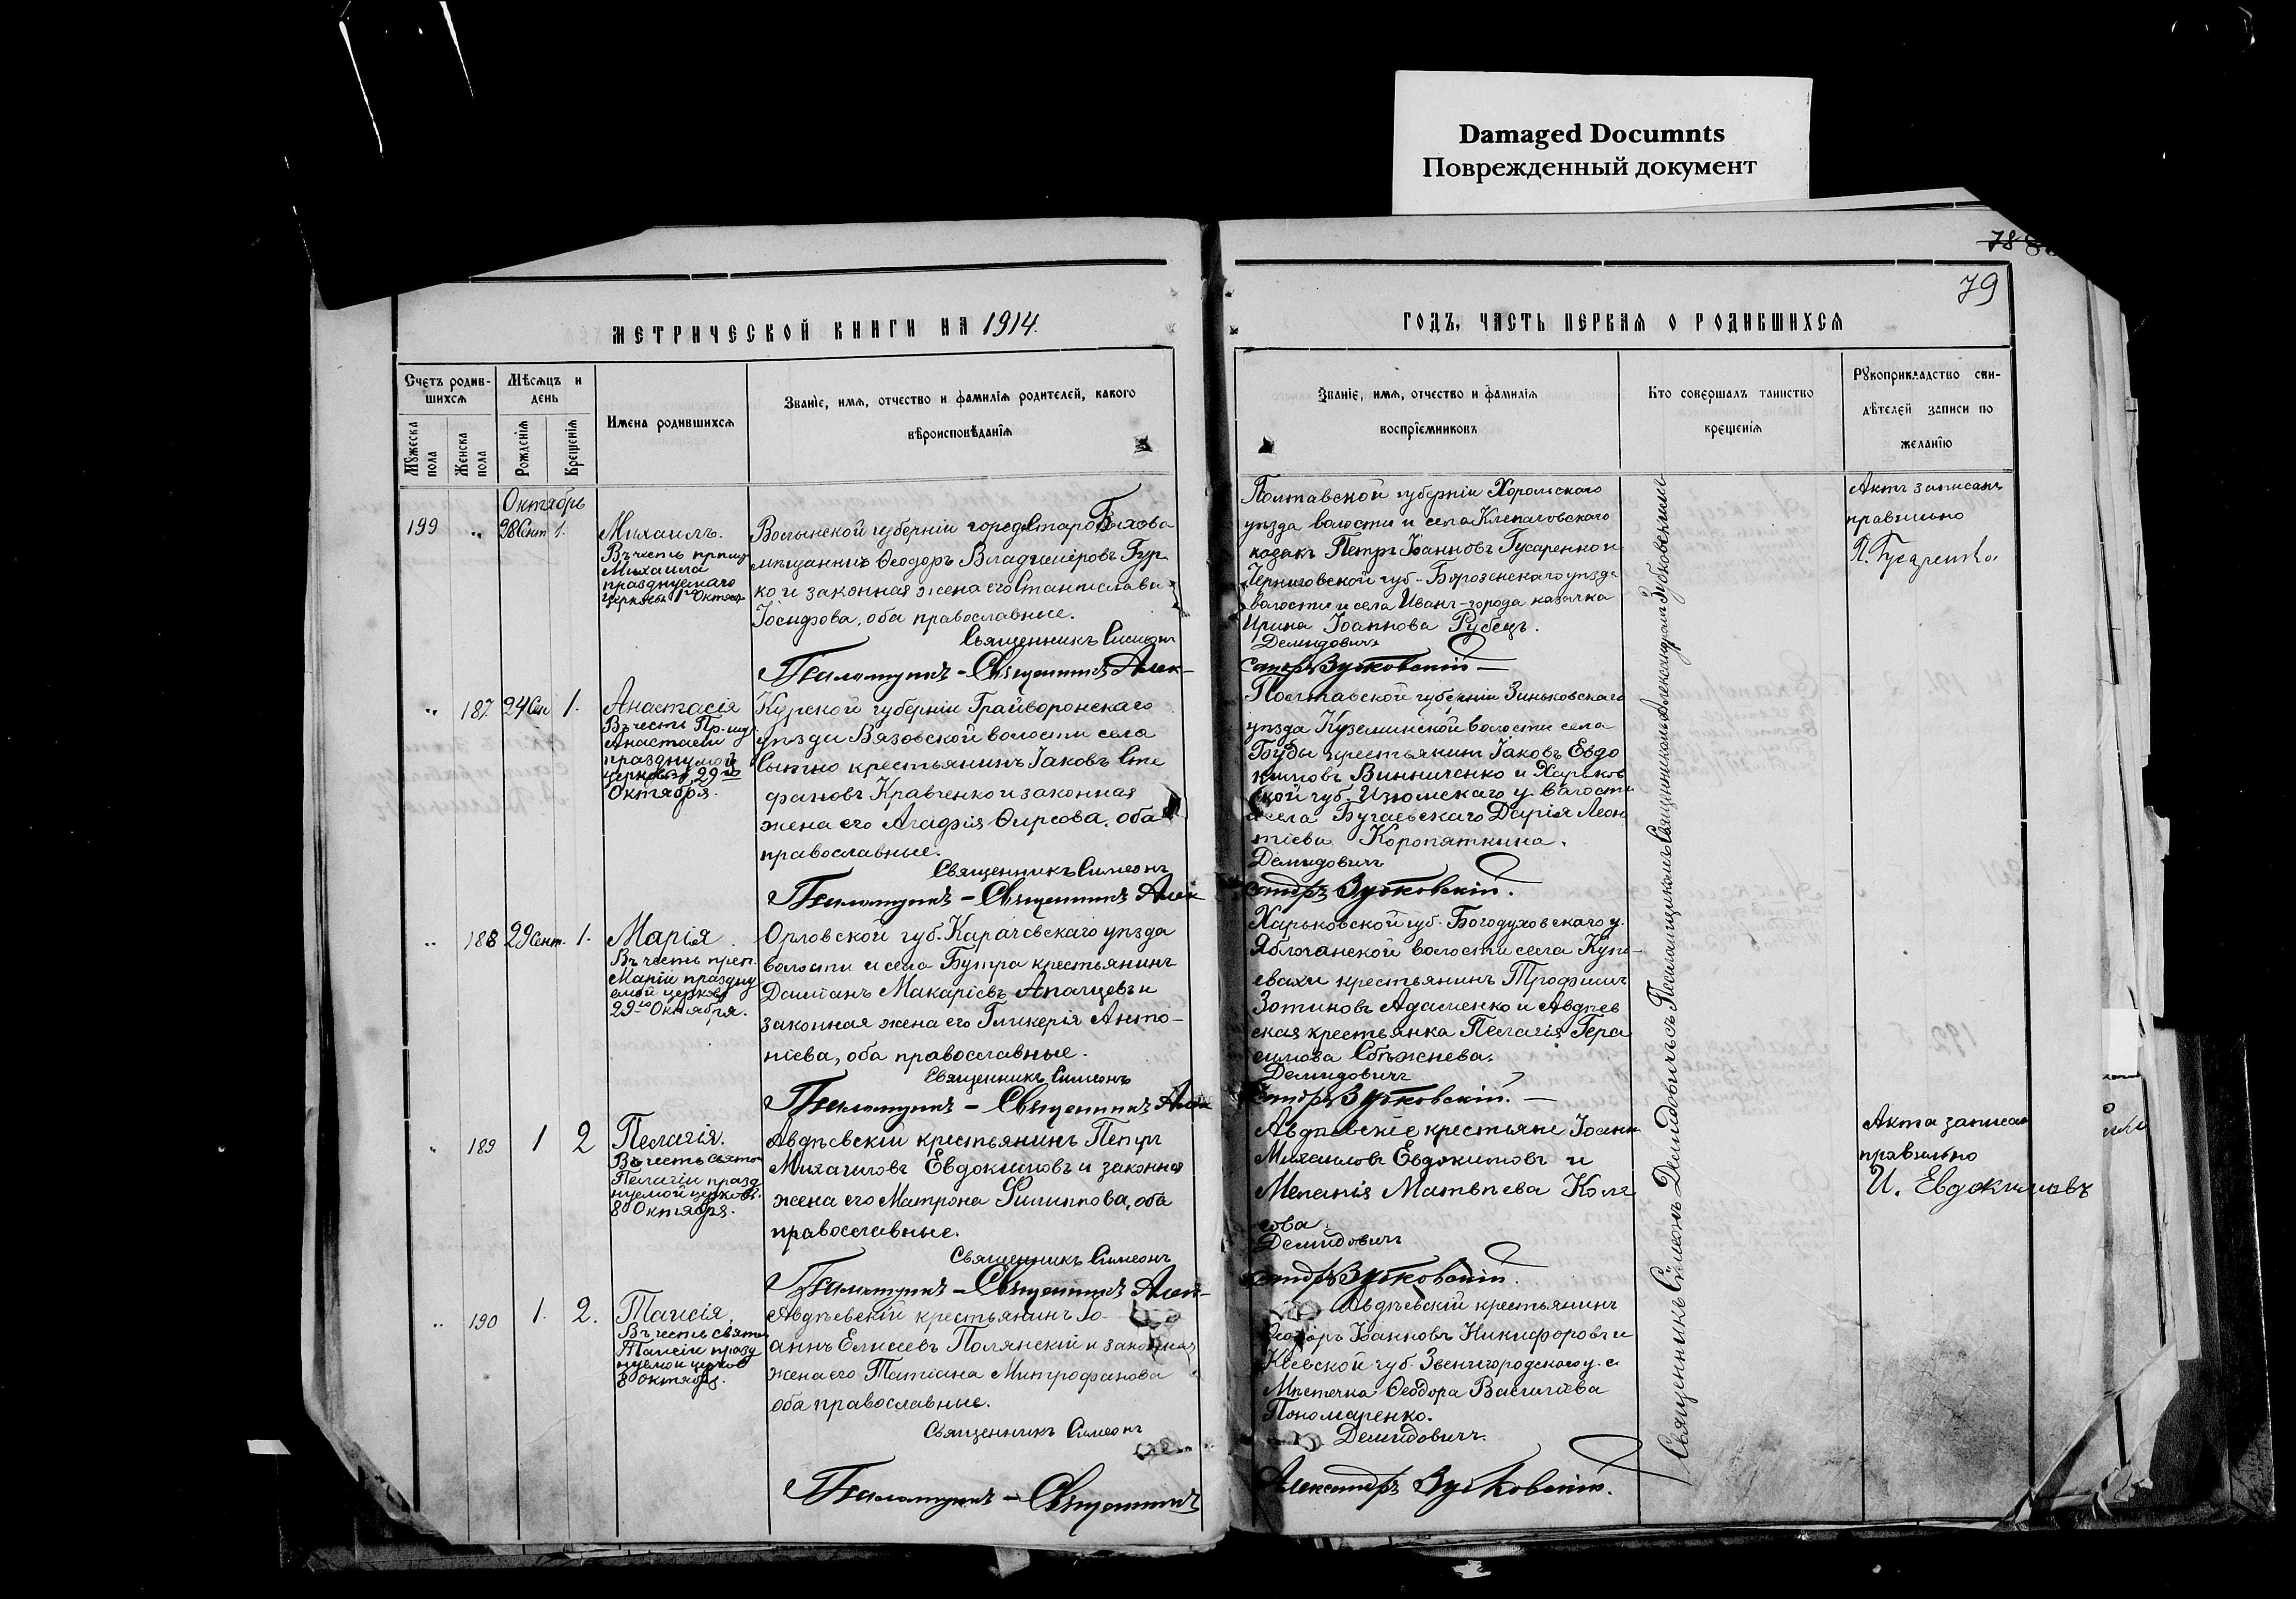 Damaged Documnts
Поврежденный документ
78
79
МЕТРИЧЕСКОЙ КНИГИ НА 1914.
ГОДЪ, ЧАСТЬ ПЕРВАЯ О РОДИВШИХСЯ
Счетъ родив-
шихся
Мѣсяцъ и
день
Имена родившихся
Званіе, имя, отчество и фамилія родителей, какого
вѣроисповѣданія
Мужеска пола
Женска пола
Рожденія
Крещенія
Званіе, имя, отчество и фамилія
воспріемниковъ
Кто совершалъ таинство
крещенія
Рукоприкладство сви-
дѣтелей записи по
желанію
Октябрь
199 " 28 Сент 1.
Михаилъ.
Въ честь
Михаила
празднуемаго
церковью 1го Октяб
Волынской губерніи города Старо Быхова
мѣщанинъ Ѳеодоръ Владиміровъ Гур
ко и законная жена его Станислава
Іосифова, оба православные.
Священникъ Симеонъ
Псиломщикъ - Священникъ Алек-
Полтавской губерніи Хорольскаго
уѣзда волости и села Клепачовскаго
казакъ Петръ Іоанновъ Гусаренко и
Черниговской губ. Борзенскаго уѣзда
волости и села Иванъ-города казачка
Ирина Іоаннова Рубецъ.
Демидовичъ
сандръ Зубковскій
Актъ записанъ
правильно
П. Гусаренко
" 187. 24 Сен 1.
Анастасія
Въ честь Пр. муч.
Анастасіи
празднуемой
церковью 29го
Октября.
Курской губерніи Грайворонскаго
уѣзда Вязовской волости села
Сытно крестьянинъ Іаковъ Сте
фановъ Кравченко и законная
жена его Агафія Ѳирсова, оба
православные.
Священникъ Симеонъ
Псиломщикъ - Священникъ Алек
Полтавской губерніи Зиньковскаго
уѣзда Куземинской волости села
Буды крестьянинъ Іаковъ Евдо
кимовъ Винниченко и Харьков
ской губ. Изюмскаго у. волости
и села Бугаевскаго Дарія Леон
тіева Коропяткина.
Демидовичъ
сандръ Зубковскій.
" 188 29 Сент. 1.
Марія
Въ честь преп.
Маріи праздну
емой церковью
29го Октября.
Орловской губ. Карачевскаго уѣзда
волости и села Бутра крестьянинъ
Даміанъ Макаріевъ Апальцевъ и
законная жена его Гликерія Анто-
ніева, оба православные.
Священникъ Симеонъ
Псиломщикъ - Священникъ Алек
Харьковской губ. Богодуховскаго у.
Яблочанской волости села Купь-
евахи крестьянинъ Трофимъ
Зотиновъ Адаменко и Авдѣев
ская крестьянка Пелагія Гера
симова Сбѣжнева.
Демидовичъ
сандръ Зубковскій.
" 189 1 2
Пелагія.
Въ честь святой
Пелагіи празд
нуемой церков.
8 Октября.
Авдѣевскій крестьянинъ Петръ
Михаиловъ Евдокимовъ и законная
жена его Матрона Филиппова, оба
православные.
Священникъ Симеонъ
Псиломщикъ - Священникъ Алек-
Авдѣевскіе крестьяне Іоаннъ
Михаиловъ Евдокимовъ и
Меланія Матвѣева Коле
сова.
Демидовичъ
сандръ Зубковскій.
Акта записан
правильно
И. Евдокимовъ
" 190 1. 2.
Таисія.
Въ честь святой
Таисіи празд
нуемой церков
8 Октября.
Авдѣевскій крестьянинъ Іо-
аннъ Елисеевъ Полянскій и законная
жена его Татіана Митрофанова
оба православные.
Священникъ Симеонъ
Псиломщикъ - Священникъ
Авдѣевскій крестьянинъ
Ѳеодоръ Іоанновъ Никифоровъ и
Кіевской губ. Звенигородскаго у. с.
Мѣстечка Ѳеодора Васильева
Пономаренко.
Демидовичъ.
Александръ Зубковскій.
Священникъ Симеонъ Демидовичъ съ Псаломщикомъ Священникомъ Александромъ Зубковскимъ